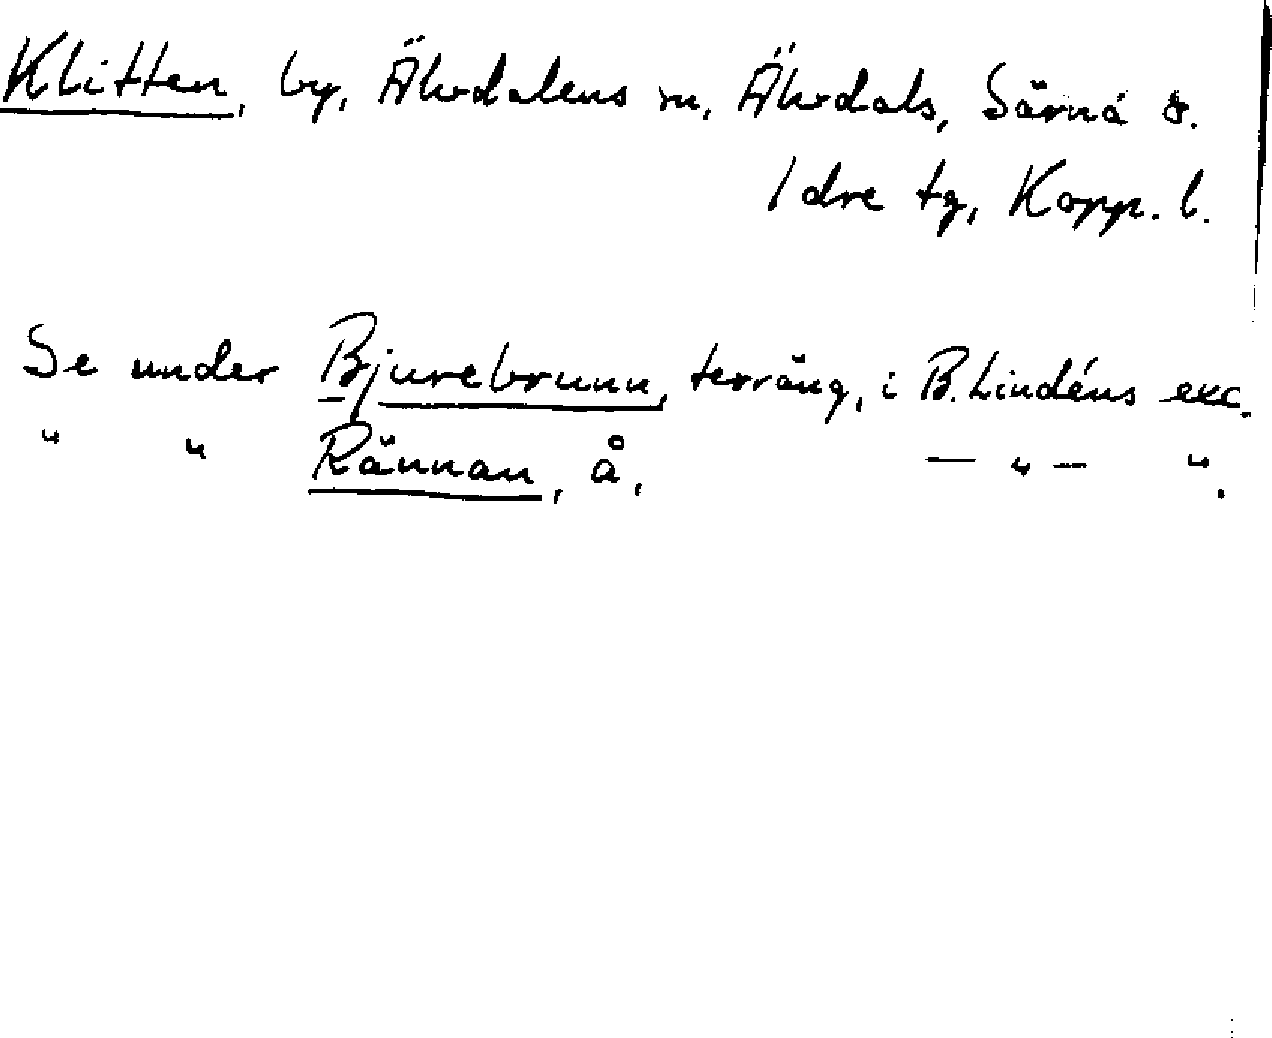 Klitten, by, Älvdalens sn, Älvdals, Särna &
Idre tg, Kopp. l.
Se under Bjurebrunn, terräng, i B. Lindéns exc.
" " Rännan, å, — " — ".